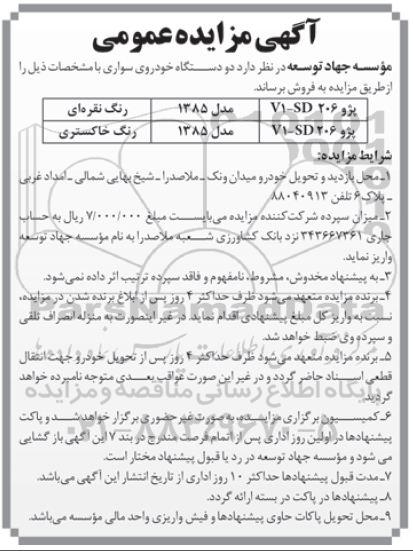 آگهی مزایده عمومی
مؤسسه جهاد توسعه در نظر دارد دو دستگاه خودروی سواری با مشخصات ذیل را
از طریق مزایده به فروش برساند.
پژو ۲۰۶ V1-SD مدل ۱۳۸۵ رنگ نقره‌ای
پژو ۲۰۶ V1-SD مدل ۱۳۸۵ رنگ خاکستری
شرایط مزایده:
۱- محل بازدید و تحویل خودرو میدان ونک - ملاصدرا - شیخ بهایی شمالی - امداد غربی
- پلاک ۶ تلفن ۸۸۰۴۰۹۱۳
۲- میزان سپرده شرکت‌کننده مزایده می‌بایست مبلغ ۷/۰۰۰/۰۰۰ ریال به حساب
جاری ۳۴۳۶۶۷۳۶۱ نزد بانک کشاورزی شعبه ملاصدرا به نام مؤسسه جهاد توسعه
واریز نماید.
۳- به پیشنهاد مخدوش، مشروط، نامفهوم و فاقد سپرده ترتیب اثر داده نمی‌شود.
۴- برنده مزایده متعهد می‌شود ظرف حداکثر ۴ روز پس از ابلاغ برنده شدن در مزایده،
نسبت به واریز کل مبلغ پیشنهادی اقدام نماید. در غیر اینصورت به منزله انصراف تلقی
و سپرده وی ضبط خواهد شد.
۵- برنده مزایده متعهد می‌شود ظرف حداکثر ۴ روز پس از تحویل خودرو جهت انتقال
قطعی اسناد حاضر گردد و در غیر این صورت عواقب بعدی متوجه نامبرده خواهد
گردید.
۶- کمیسیون برگزاری مزایده، به صورت غیر حضوری برگزار خواهد شد و پاکت
پیشنهادها در اولین روز اداری پس از اتمام فرصت مندرج در بند ۷ این آگهی بازگشایی
می شود و مؤسسه جهاد توسعه در رد یا قبول پیشنهاد مختار است.
۷- مدت قبول پیشنهادها حداکثر ۱۰ روز اداری از تاریخ انتشار این آگهی می‌باشد.
۸- پیشنهادها در پاکت در بسته ارائه گردد.
۹- محل تحویل پاکات حاوی پیشنهادها و فیش واریزی واحد مالی مؤسسه می‌باشد.